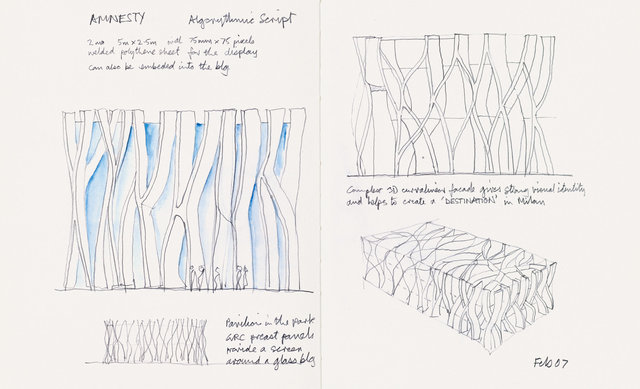 AMNESTY Algorythmic Script
2 no 5m x 2.5m with 75mm x 75 pixels
welded polythene sheet for the display
can also be embeded into the bldg
Pavilion in the Park
GRC precast panels
provide a screen
around a glass bldg
Complex 3D curvalinear facade gives strong visual identity
and helps to create a 'DESTINATION' in Milan
Feb 07